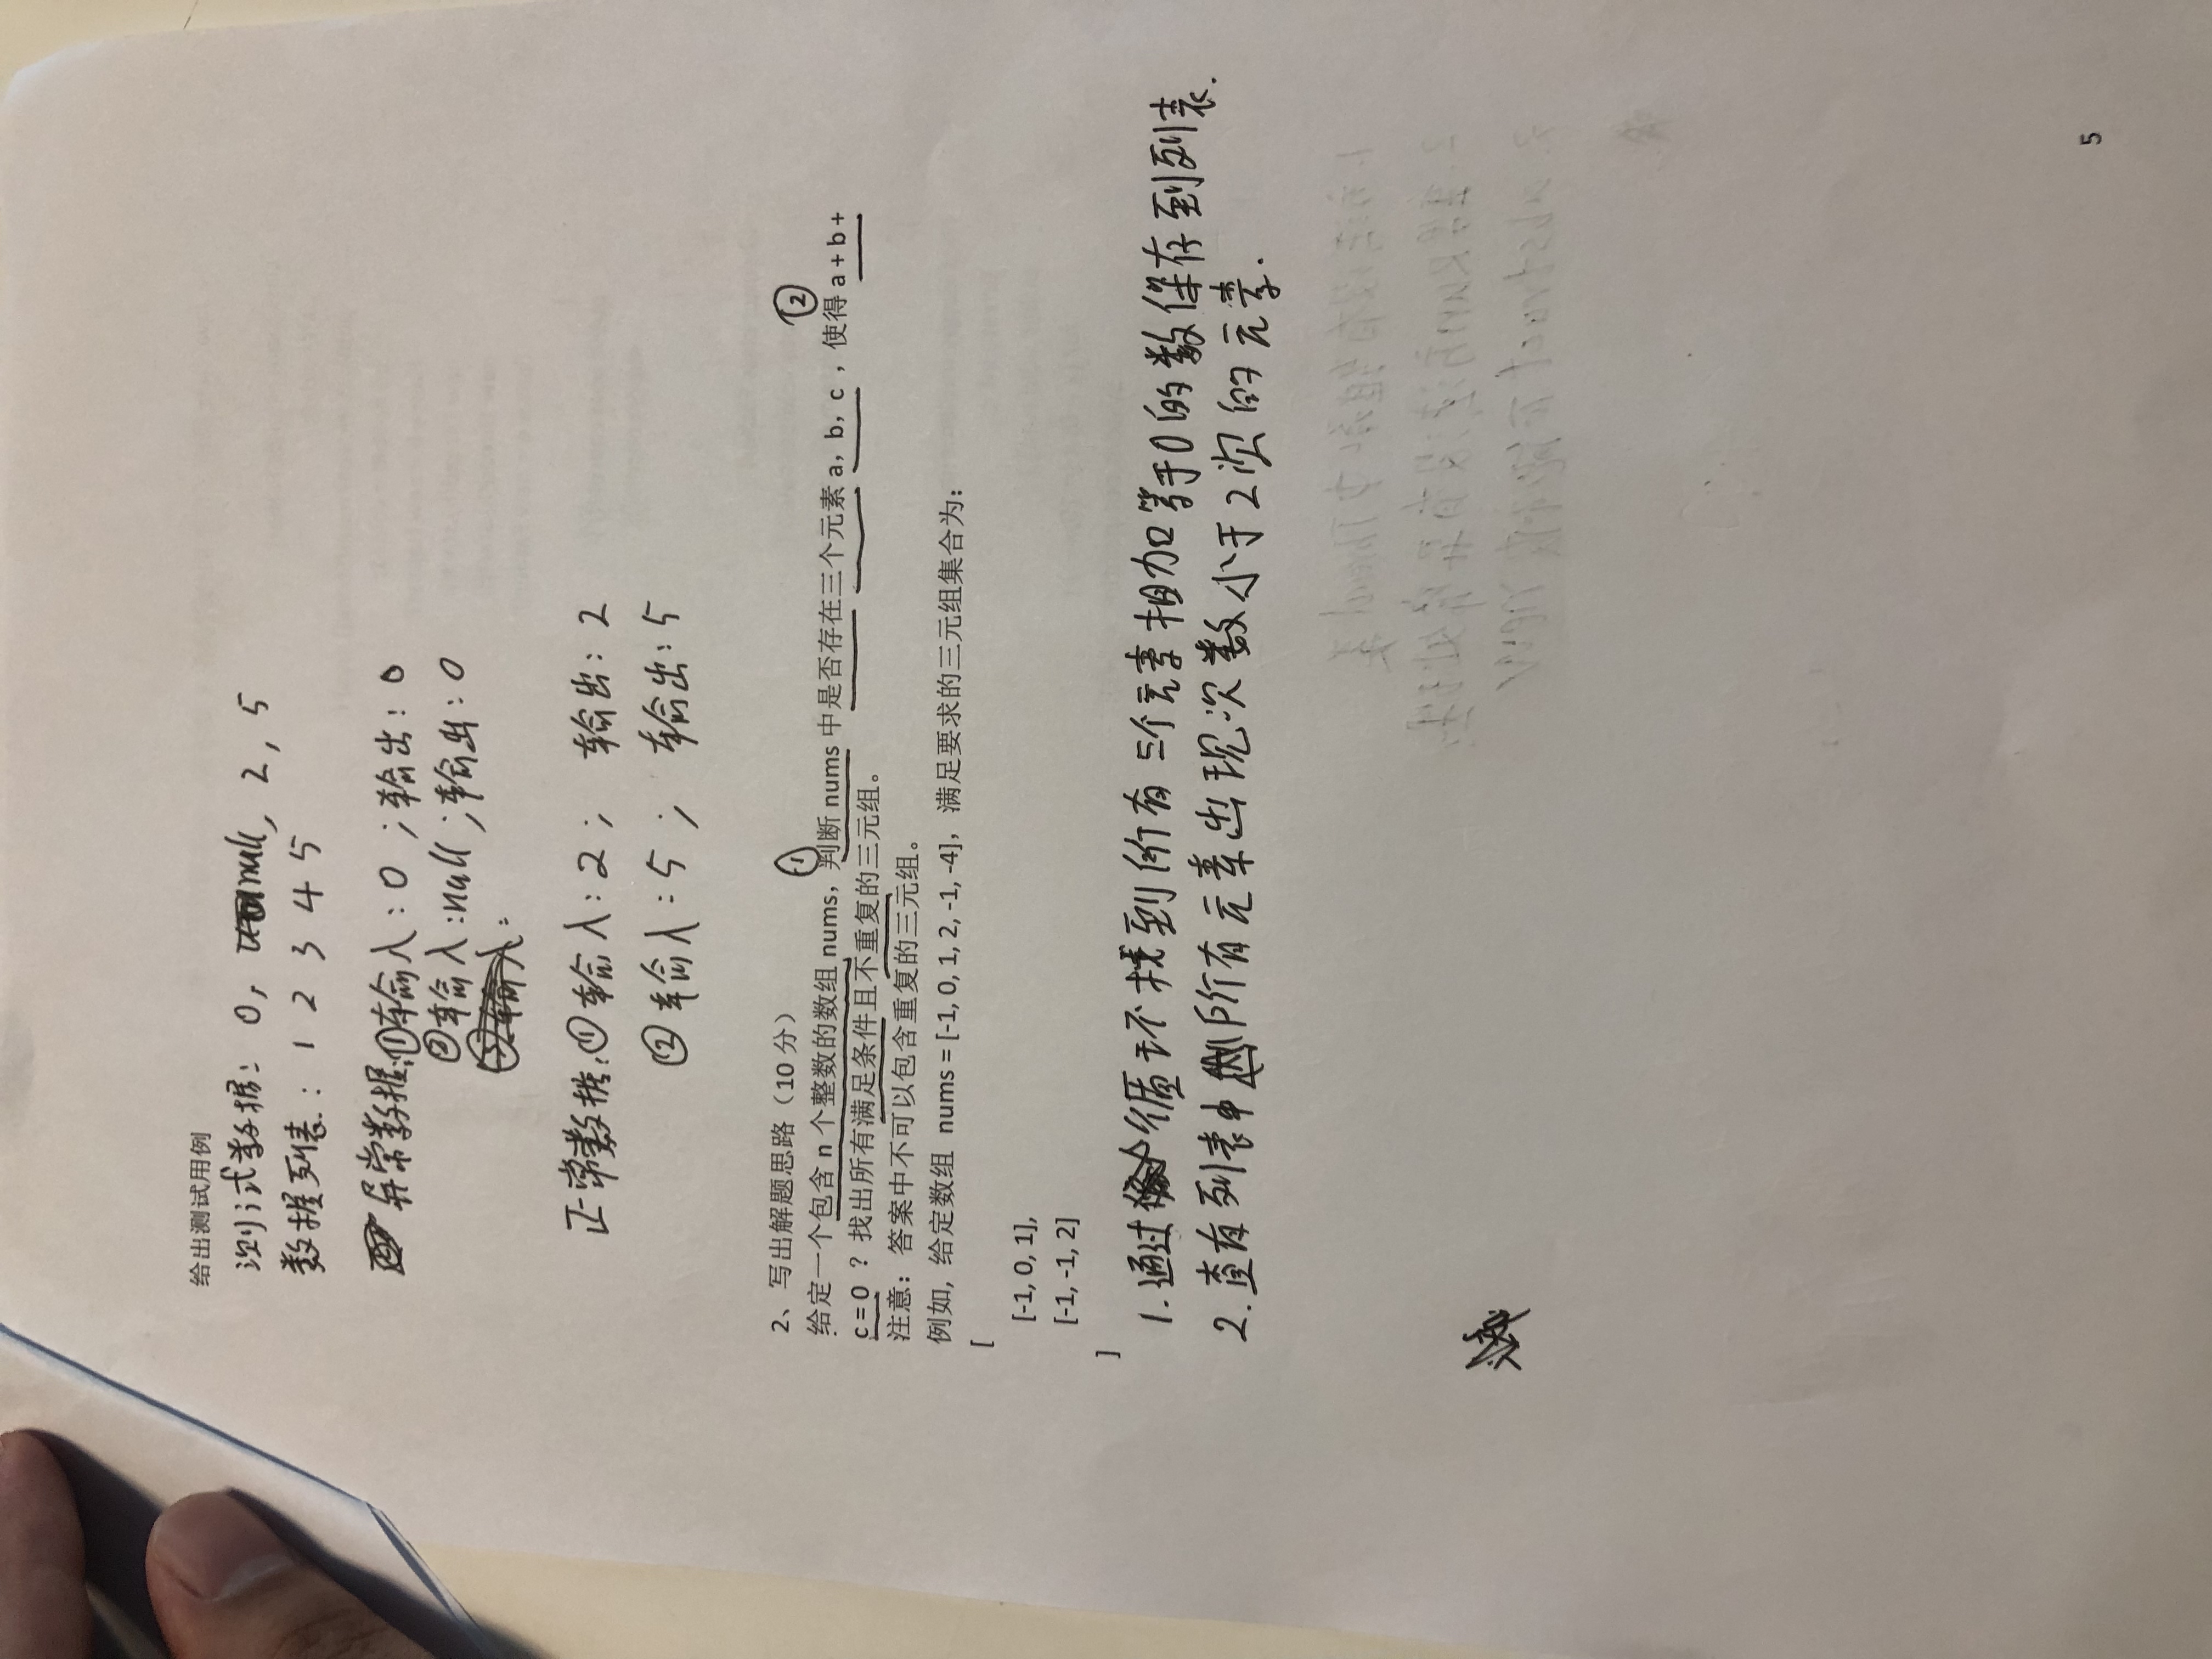 给出测试用例
测试数据: 0, null, 2, 5
数据列表: 1 2 3 4 5
异常数据:①输入:0 ;输出:0
②输入:null ;输出:0
③输入:
正常数据:①输入:2 ; 输出:2
②输入:5 ; 输出:5
2、写出解题思路（10 分）
① ②
给定一个包含 n 个整数的数组 nums，判断 nums 中是否存在三个元素 a，b，c ，使得 a + b +
c = 0 ？找出所有满足条件且不重复的三元组。
注意：答案中不可以包含重复的三元组。
例如, 给定数组 nums = [-1, 0, 1, 2, -1, -4]，满足要求的三元组集合为：
[
[-1, 0, 1],
[-1, -1, 2]
]
1.通过循环找到所有三个元素相加等于0的数保存到列表.
2.查有列表中所有元素出现次数小于2次的元素.
5